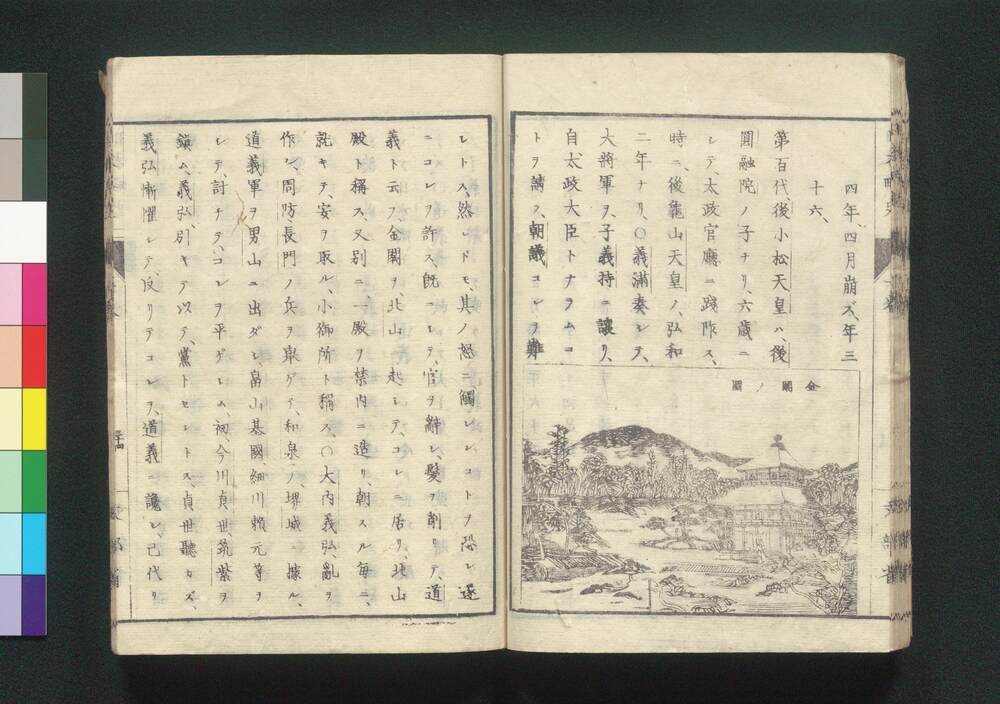 四年、四月崩ズ、年三
十六、
第百代、後小松天皇ハ、後
圓融院ノ子ナリ、六歳ニ
シテ、太政官廳ニ踐祚ス、
時ニ、後龜山天皇ノ、弘和
二年ナリ、〇義滿奏シテ、
大將軍ヲ、子義持ニ讓リ、
自太政大臣トナラムコ
トヲ請フ、朝議コレヲ難
金閣ノ圖
シトス、然レドモ、其ノ怒ニ觸レンコトヲ恐レ遂
ニコレヲ許ス、既ニシテ、官ヲ辭シ、髮ヲ削リテ、道
義ト云フ、金閣ヲ、北山ニ起シテ、コレニ居リ、北山
殿ト稱ス、又別ニ一殿ヲ禁内ニ造リ、朝スル毎ニ、
就キテ、安ヲ取ル、小御所ト稱ス、〇大内義弘、亂ヲ
作シ、周防長門ノ兵ヲ擧ゲテ、和泉ノ堺城ニ據ル、
道義軍ヲ男山ニ出ダシ、畠山基國細川賴元等ヲ
シテ、討チテ、コレヲ平ゲシム、初、今川貞世、筑紫ヲ
鎭ム、義弘、引キテ以テ、黨トセントス、貞世聽カズ、
義弘慚懼シテ、反リテコレヲ、道義ニ讒シ、己代リ